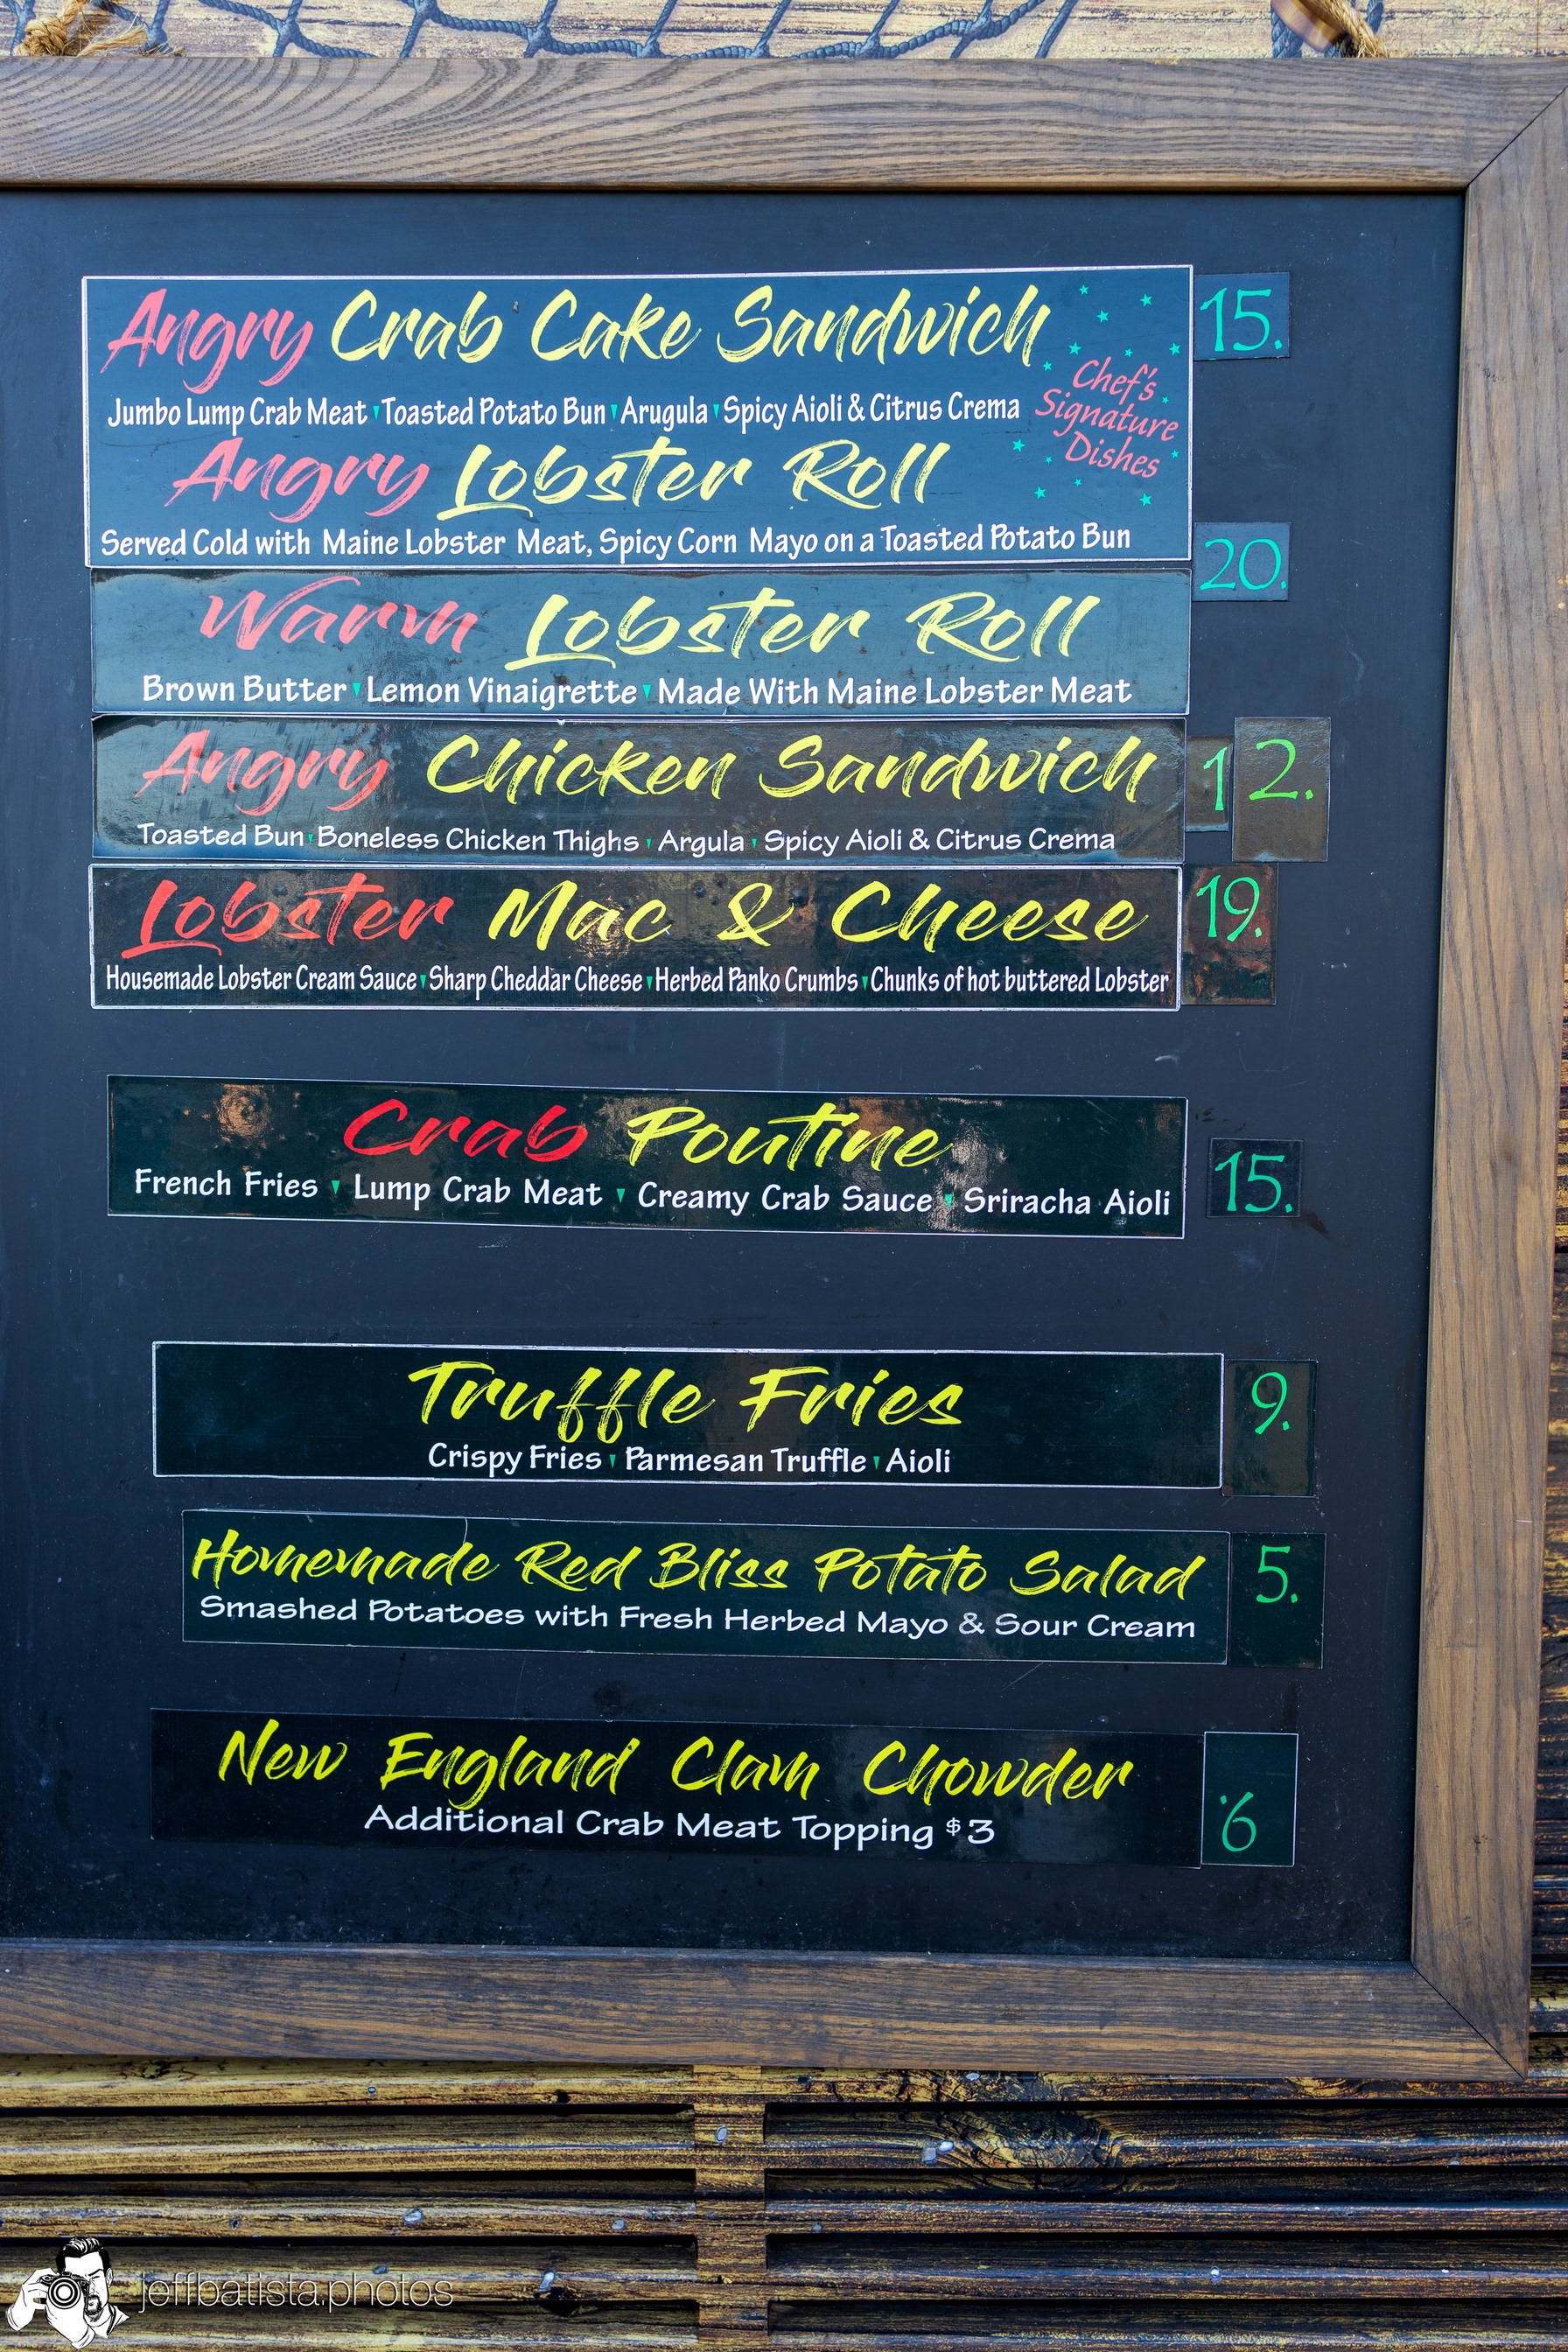 Angry Crab Cake Sandwich 15.
Jumbo Lump Crab Meat Toasted Potato Bun Arugula Spicy Aioli & Citrus Crema
Chef's
Signature
Dishes
Angry Lobster Roll
Served Cold with Maine Lobster Meat, Spicy Corn Mayo on a Toasted Potato Bun
20.
Warm Lobster Roll
Brown Butter Lemon Vinaigrette Made With Maine Lobster Meat
Angry Chicken Sandwich 12.
Toasted Bun Boneless Chicken Thighs Argula Spicy Aioli & Citrus Crema
Lobster Mac & Cheese 19.
Housemade Lobster Cream Sauce Sharp Cheddar Cheese Herbed Panko Crumbs Chunks of hot buttered Lobster
Crab Poutine
French Fries Lump Crab Meat Creamy Crab Sauce Sriracha Aioli 15.
Truffle Fries 9.
Crispy Fries Parmesan Truffle Aioli
Homemade Red Bliss Potato Salad 5.
Smashed Potatoes with Fresh Herbed Mayo & Sour Cream
New England Clam Chowder
Additional Crab Meat Topping $3 6
jeffbatista.photos